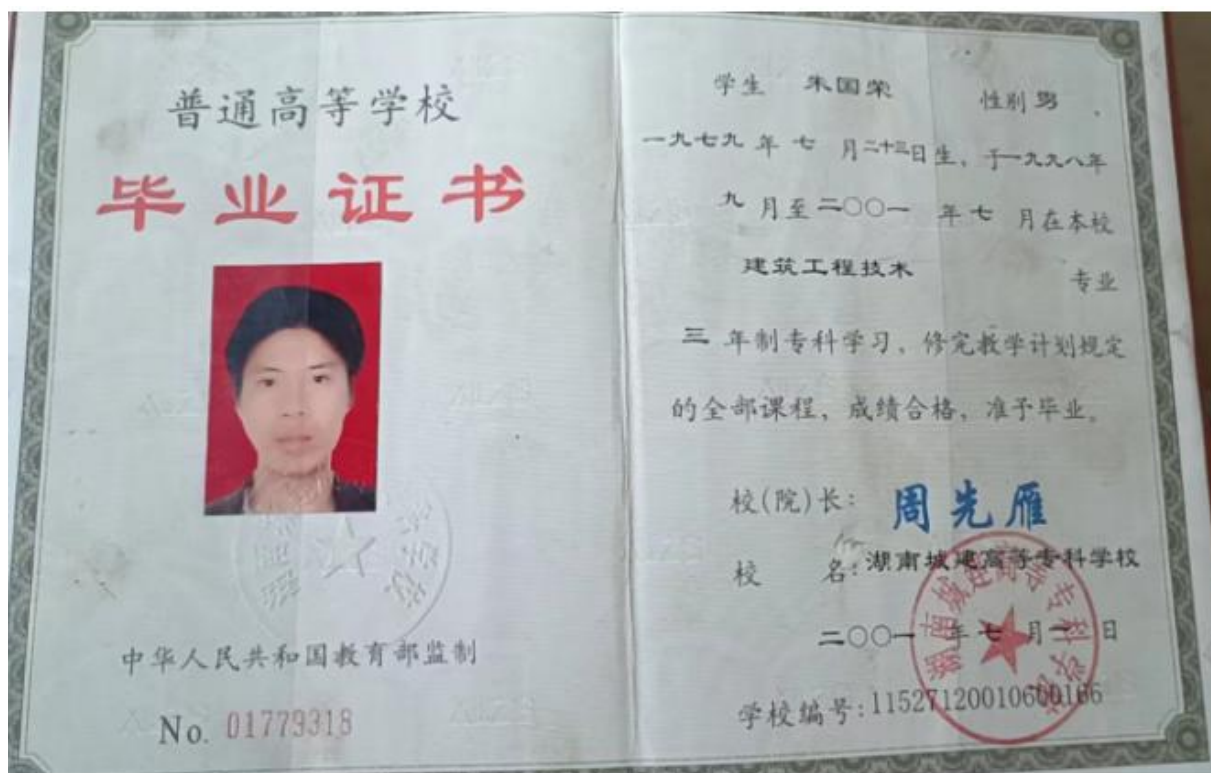 普通高等学校
毕业证书
中华人民共和国教育部监制
No. 01779318
学生 朱国荣 性别 男,
一九七九 年 七 月二十三日生,于一九九八年
九 月至二〇〇一 年 七 月在本校
建筑工程技术 专业
三 年制专科学习,修完教学计划规定
的全部课程,成绩合格,准予毕业。
校(院)长: 周先雁
校 名: 湖南城建高等专科学校
二〇〇一 年 七 月 日
学校编号: 11527120010600166
湖南城建高等专科学校